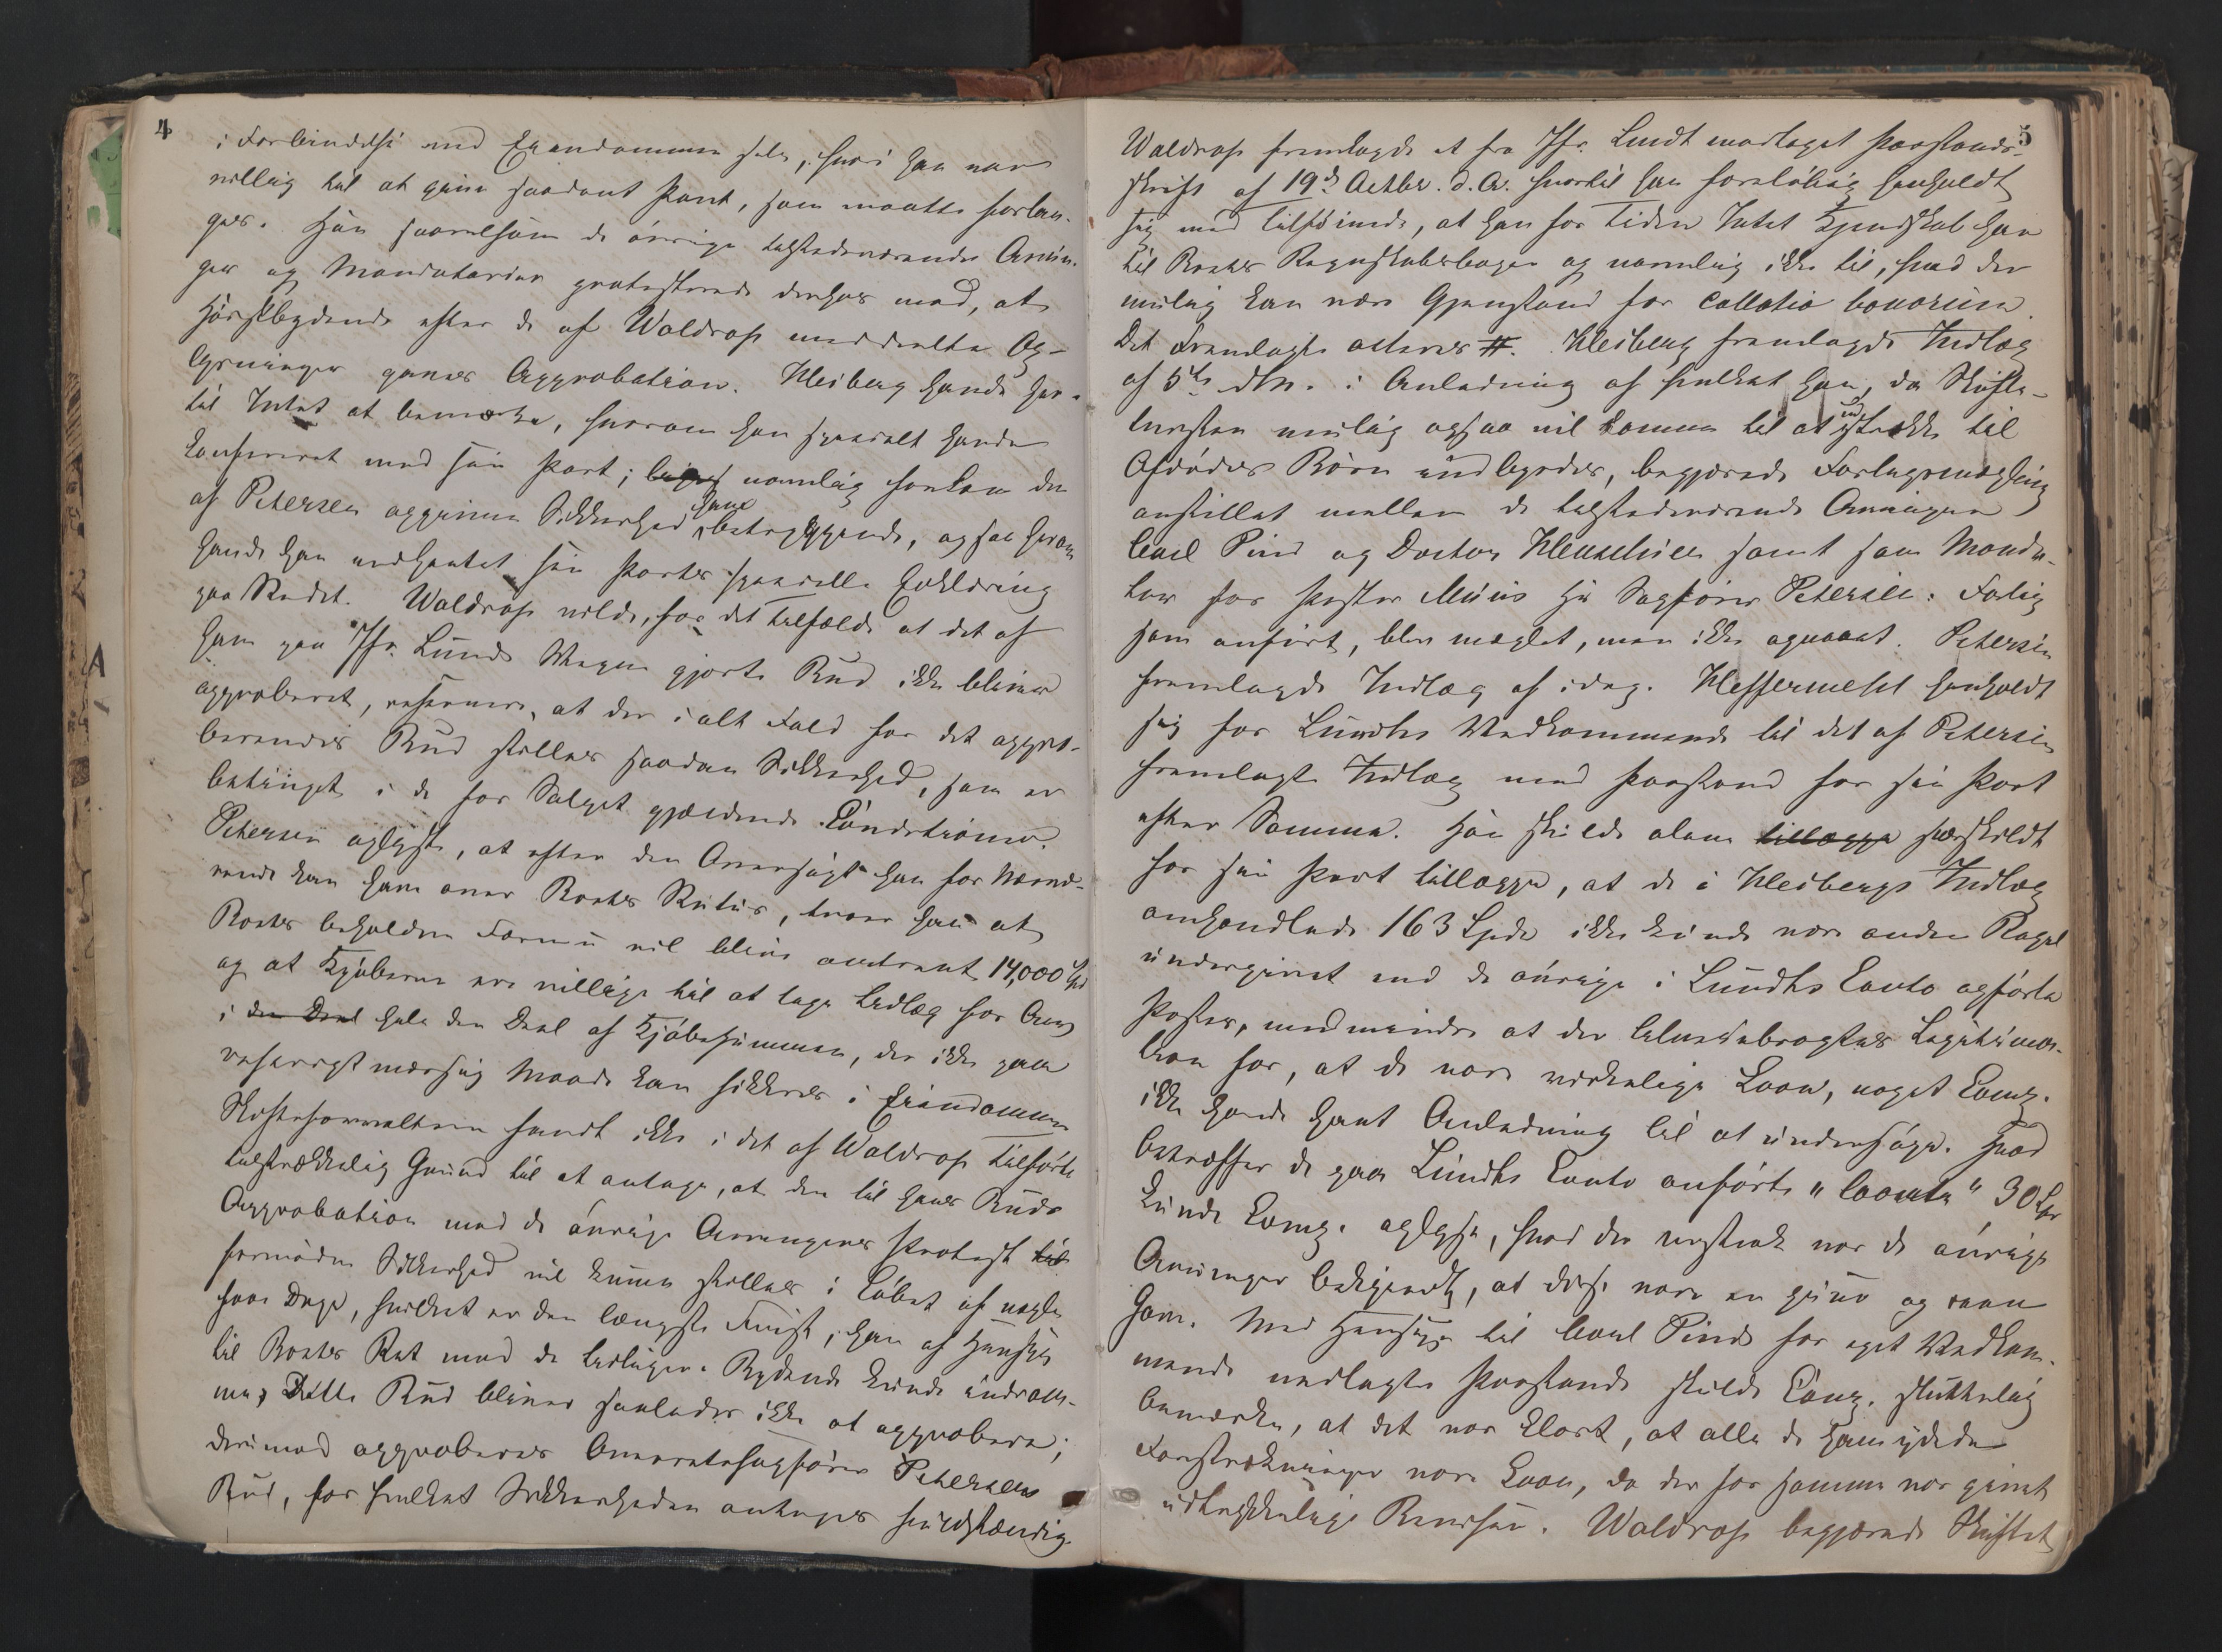 4
i Forbindelse med Eiendommen selv, hvori han var
villig til at give saadant Pant, som maatte forlan-
ges. Han saavelsom de øvrige tilstedeværende Arvin-
ger og Mandatarier protesterede derhos mod, at
Høistbydende efter de af Waldrop meddeelte Op-
lysninger gaves Approbation. Heiberg havde her-
til Intet at bemærke, hvorom han specielt havde
confereret med sin Part; navnlig fandt den
af Petersen opgivne Sikkerhed hans betryggende, og saa herom
havde han indhentet sin Parts specielle Erklæring
paa Stedet. Waldrop vilde, for det Tilfælde at det af
ham paa Jfr. Lunds Vegne gjorte Bud ikke bliver
approberet, reservere, at der i alt Fald for det appro-
berendes Bud stilles saadan Sikkerhed, som er
betinget i de for Salget gjældende Conditioner.
Petersen oplyste, at efter den Oversigt han for Nærvæ-
rende kan have over Boets Status, troer han at
Boets beholdne Formue vil blive omtrent 14,000 Spd
og at Kjøberne ere villige til at tage Udlæg for Arv
i den Deel hele den Deel af Kjøbesummen, der ikke paa
reserveret Maade kan sikkres i Eiendommen
Skifteforvalteren fandt ikke i det af Waldrop tilførte
tilstrækkelig Grund til at antage, at den til hans Buds
Approbation mod de øvrige Arvingers Protest
fornødne Sikkerhed vil kunne stilles i Løbet af nogle
faa Dage, hvilket er den længste Frist, han af Hensyn
til Boets Ret mod de tidligere Bydende kunde indrøm-
me, Dette Bud bliver saaledes ikke at approbere;
derimod approberes Overretssagfører Petersens
Bud, for hvilket Sikkerheden antages fuldstændig.
5
Waldrop fremlagde et fra Jfr. Lundt modtaget Paastands-
skrift af 19de Octbr. d. A. hvortil han foreløbig henholdt
sig med Tilføiende, at han for Tiden Intet Kjendskab har
til Boets Regnskabsbøger og navnlig ikke til, hvad der
mulig kan være Gjenstand for collatio bonorum.
Det Fremlagte acteres #. Heiberg fremlagde Indlæg
af 5te dM. i Anledning af hvilket han, da Skifte-
kunsten mulig ogsaa vil komme til at udstrække til
Afdødes Børn indbyrdes, begjærede Forligsmægling
anstillet mellem de tilstedeværende Arvinger
Carl Pind og Doctor Hentschien samt som Manda-
tar for Pastor Muus Hr Sagfører Petersen: Forlig
som anført, blev mæglet, men ikke opnaaet. Petersen
fremlagde Indlæg af idag. Heffermehl henholdt
sig for Lundhs Vedkommende til det af Petersen
fremlagte Indlæg med Paastand for sin Part
efter Samme. Han skulde alene tillægge særskildt
for sin Part tillægge, at de i Heibergs Indlæg
omhandlede 163 Spd ikke kunde være anden Regel
undergivet end de øvrige i Lundhs Conto opførte
Poster, medmindre at der tilveiebragtes Legitima-
tion for, at de vare virkelige Laan, noget Comp.
ikke havde havt Anledning til at undersøge. Hvad
betræffer de paa Lundhs Conto anførte " Contra " 30 Spd
kunde Comp. oplyse, hvad der upstrak var de øvrige
Arvinger bekjendt, at disse vare en given og ren
Gave. Med Hensyn til Carl Pinds for eget Vedkom-
mende nedlagte Paastande skulde Comp. sluttelig
bemærke, at det var klart, at alle de ham ydede
Forstrækninger vare Laan, da der for samme var givet
udtrykkelige Beviser. Waldrop begjærede Skiftet